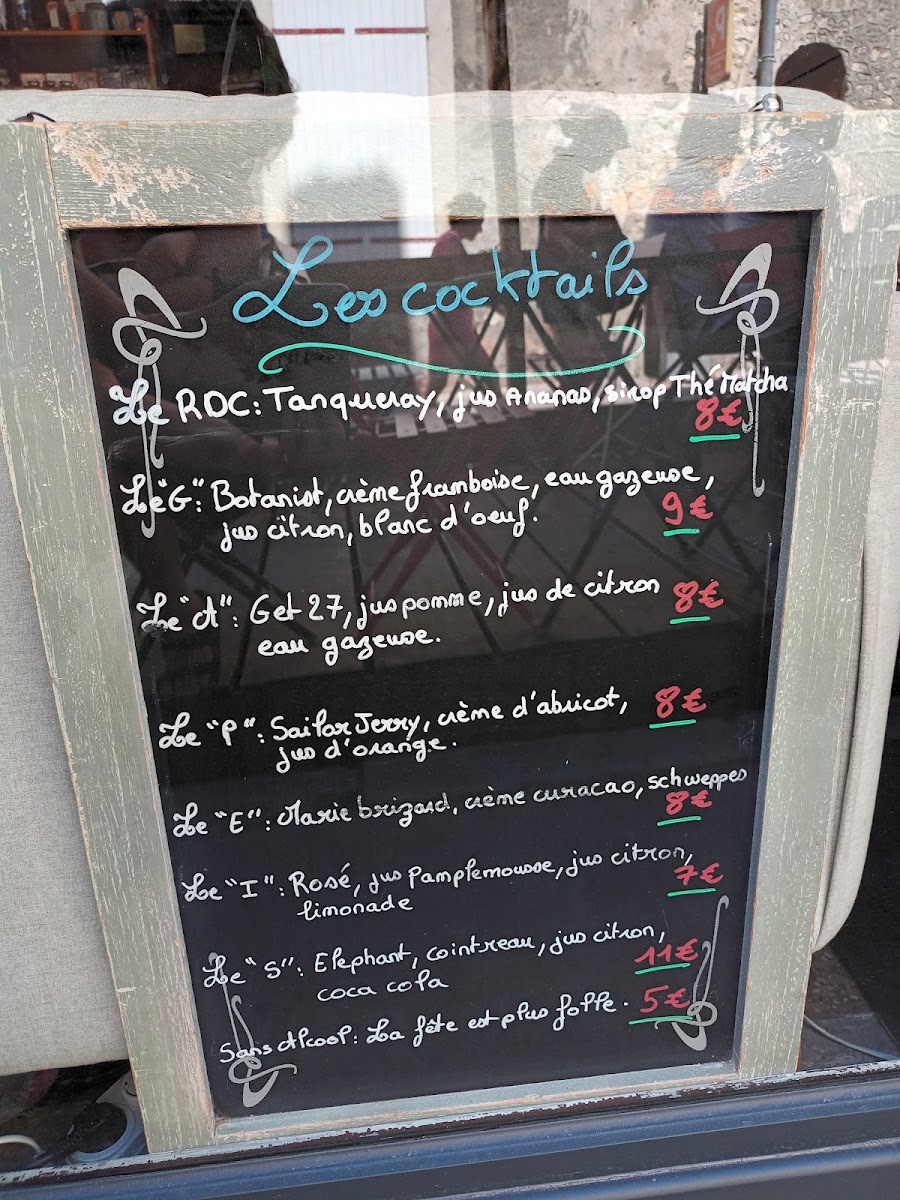 Les cocktails
Le RDC: Tanqueray, jus Ananas, sirop Thé Matcha
8€
Le "G": Botanist, crème framboise, eau gazeuse,
jus citron, blanc d'oeuf. 9€
Le "A": Get 27, jus pomme, jus de citron 8€
eau gazeuse.
Le "P": Sailor Jerry, crème d'abricot, 8€
jus d'orange.
Le "E": Marie brizard, crème curacao, schweppes
8€
Le "I": Rosé, jus Pamplemousse, jus citron,
limonade 7€
Le "S": Elephant, cointreau, jus citron, 11€
coca cola
Sans Alcool: La fête est plus folle. 5€